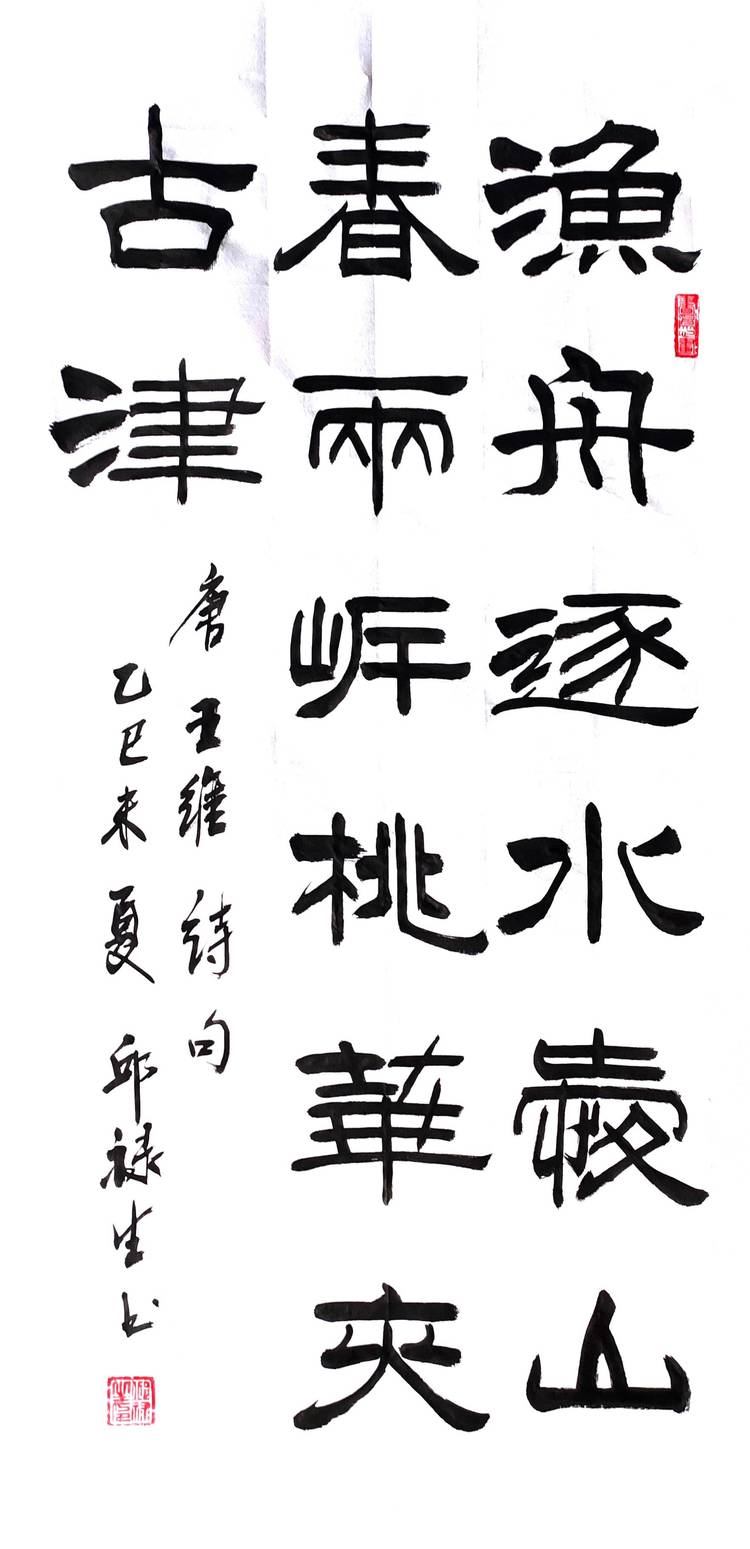 漁舟逐水愛山
春兩岸桃華夾
古津
唐王維詩句
乙巳末夏邱禄生书